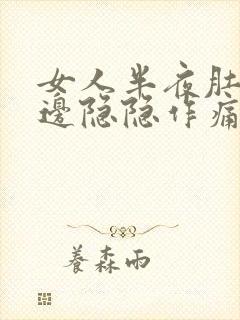 女人半夜肚
邊隐隐作痛
養森雨